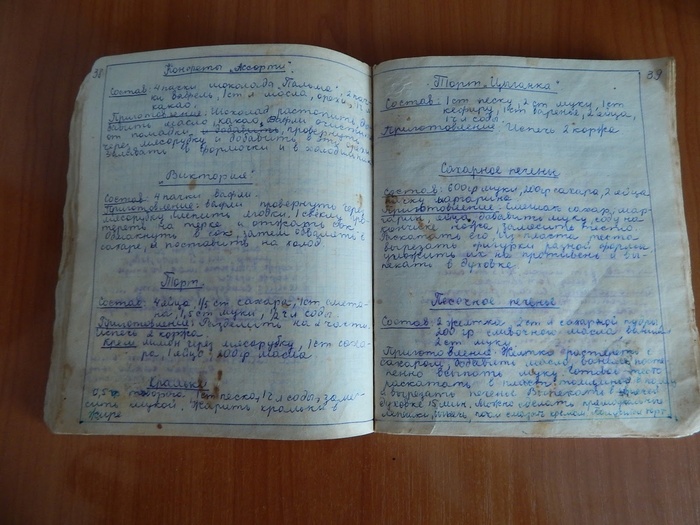 38
Конфеты "Ассорти"
Состав: 4 пачки шоколада "Пальма", 2 пач-
ки вафель, 1 ст л масла, орехи, 1 ч л
какао.
Приготовление: Шоколад растопить, до-
бавить масло, какао, вафли очистить
от помадки, и добавить, провернуть
через мясорубку и добавить в эту
заливать в формочки и в холодильник
"Виктория"
Состав: 4 пачки вафли.
Приготовление: вафли провернуть через
мясорубку слепить ягодки. 1 свеклу про-
тереть на терке и отжать сок
обмакнуть в сок затем обвалять в
сахаре, и поставить на холод.
Торт
Состав: 4 яйца 1,5 ст сахара, 1 ст смета-
на, 1,5 ст муки, 1/2 ч л соды.
Приготовление: Разделить на 2 части,
испечь 2 коржа
Крем лимон через мясорубку, 1 ст саха-
ра, 1 яйцо, 200 гр масла
Кральки
0,5 кг творога, 1 ст песка, 1/2 ч л соды, заме-
сить мукой. Жарить кральки в
жире
39
Торт "Цыганка"
Состав: 1 ст песку, 2 ст муки, 1 ст
кефиру, 1 ст варенья, 2 яйца,
1 ч л соды.
Приготовление Испечь 2 коржа
Сахарное печенье
Состав: 600 гр муки, 200 гр сахара, 2 яйца
пачку маргарина
Приготовление: смешать сахар, мар-
гарин, яйца, добавить муку, соду на
кончике ножа замесить тесто.
Раскатать его в пласт теста
вырезать фигурки разной формы
уложить их на противень и вы-
пекать в духовке
Песочное печенье
Состав: 2 желтка 2 ст л сахарной пудры,
200 гр сливочного масла ванили
2 ст муки
Приготовление: Желтки растереть с
сахаром, добавить масло, ваниль, посте-
пенно всыпать муку готовое тесто
раскатать в пласт толщиной
вырезать печенье Выпекать в
духовке 15 мин. Можно сделать
кремом